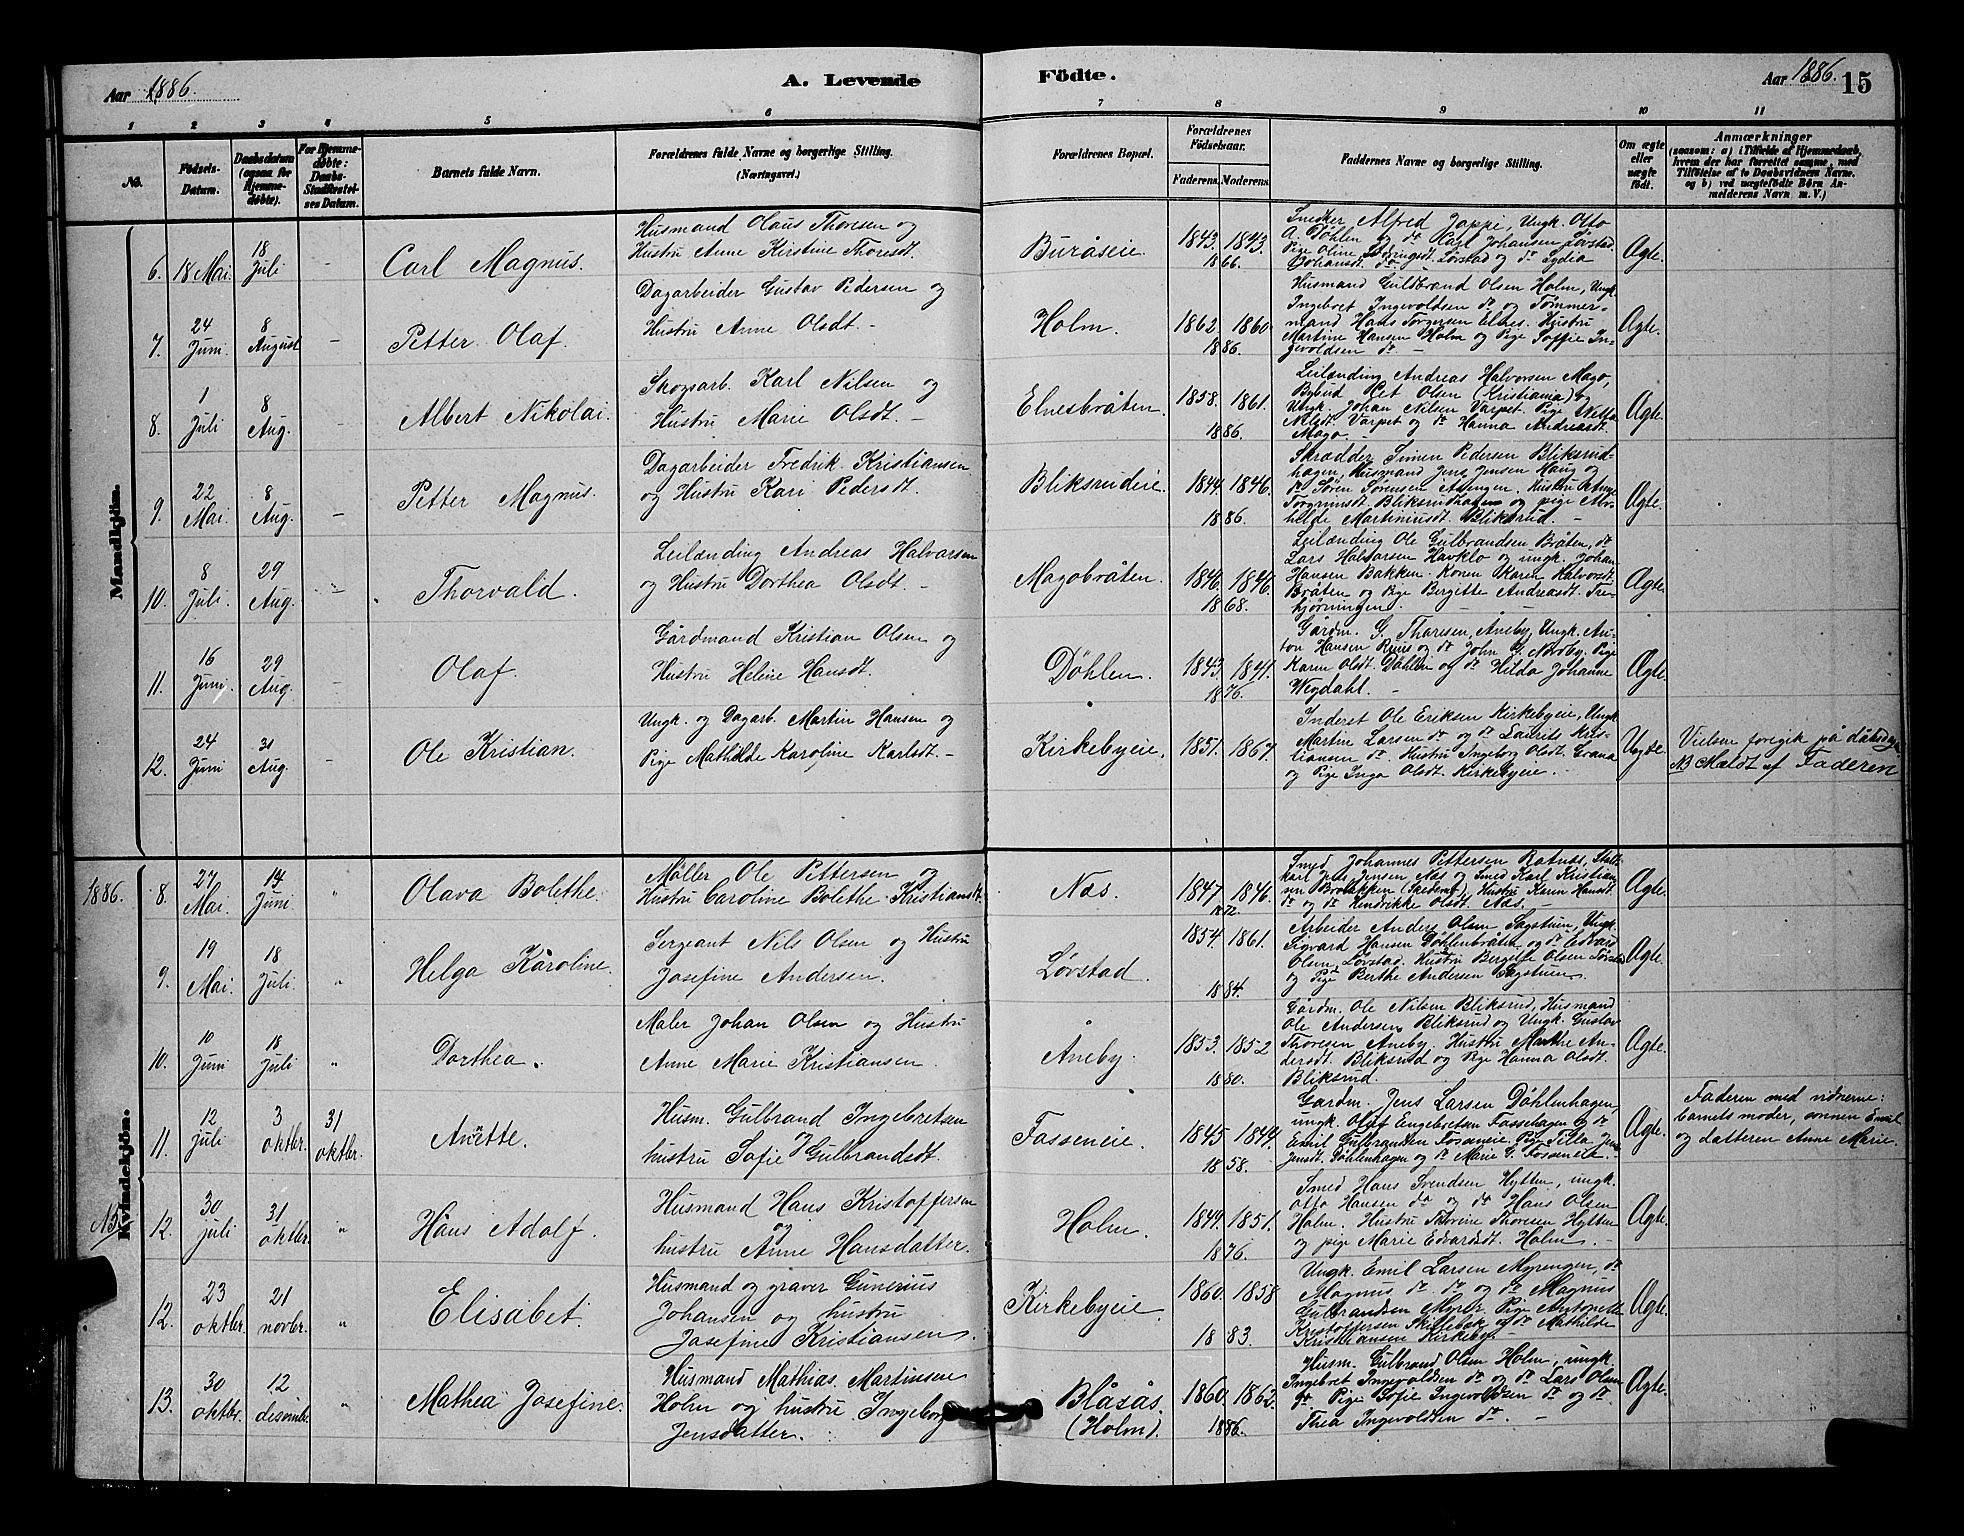 Aar 1886.
A. Levende Födte.
Aar 1886. 15
1 2 3 4 5 6 7 8 9 10 11
No.
Födsels-Datum.
Daabsdatum (ogsaa for Hjemmedøbte).
For Hjemmedøbte: Daabs-Stadfæstelses Datum.
Barnets fulde Navn.
Forældrenes fulde Navne og borgerlige Stilling. (Næringsvei.)
Forældrenes Bopæl.
Forældrenes Födselsaar.
Faderens. Moderens.
Faddernes Navne og borgerlige Stilling.
Om ægte eller uægte født.
Anmærkninger
(saasom: a) i Tilfælde af Hjemmedaab, hvem der har forrettet samme, med Tilføielse af to Daabsvidners Navne, og b) ved uægtefødte Børn Anmelderens Navn m. V.)
Mandkjön.
6. 18 Mai. 18 Juli - Carl Magnus.
Husmand Olaus Thoresen og
Hustru Anne Kristine Thoresdt.
Buråseie. 1843. 1843. 1866.
Snedker Alfred Jappi, Ungk. Otto
A. Döhlen og do Karl Johansen Lövstad.
Pige Oline Lövstad og do Lydia
Johansdt. do
Ægte.
7. 24 Juni. 8 August - Petter Olaf.
Dagarbeider Gustav Pedersen og
Hustru Anne Olsdt. -
Holm. 1862. 1860 1886.
Husmand Guldbrand Olsen Holm, Ungk.
Ingebret Ingevoldsen do og Tömmer-
mand Hans Torgersen Elnes. Hustru
Martine Hansen Holm og Pige Soffie In-
gevoldsen do. -
Ægte.
8. 1 Juli 8 Aug. - Albert Nikolai.
Skogsarb. Karl Nilsen og
Hustru Marie Olsdt. -
Elnesbråten. 1858. 1861. 1886.
Leilænding Andreas Halvorsen Mago,
Bybud Olsen (Kristiania) og
Ungk. Johan Nilsen Varpet. Pige Netta
Nilsdt. Varpet og do Hanna Andreasdt.
Mago. -
Ægte.
9. 22 Mai. 8 Aug. - Petter Magnus.
Dagarbeider Fredrik Kristiansen
og Hustru Kari Pedersdt.
Bliksrudeie. 1844. 1846. 1886.
Skrædder Simen Pedersen Bliksrud-
hagen, Husmand Jens Jensen Haug og
do Sören Sörensen Asengen. Hustru
Bliksrudhagen og pige
Martiniusdt. Bliksrud. -
Ægte.
10. 8 Juli. 29 Aug. - Thorvald.
Leilænding Andreas Halvorsen
og Hustru Dorthea Olsdt. -
Magobråten. 1846. 1846. 1868.
Leilænding Ole Gulbrandsen Bråten, do
Lars Halvorsen Havklo og ungk. Johan
Hansen Bakken. Konen Karen Halvorsdt.
Bråten og Pige Bergitte Andreasdt. Tre-
hjörningen.
Ægte.
11. 16 Juni. 29 Aug. - Olaf.
Gårdmand Kristian Olsen og
Hustru Helene Hansdt.
Döhlen. 1843. 1841. 1876.
Gårdm. G. Thoresen, Aneby, Ungk. An-
ton Hansen og do John G. Nordby. Pige
Karen Olsdt. Döhlen og do Hilda Johanne
Wegdahl. -
Ægte.
12. 24 Juni 31 Aug. - Ole Kristian.
Ungk. og Dagarb. Martin Hansen og
Pige Mathilde Karoline Karlsdt. -
Kirkebyeie. 1851. 1867.
Inderst Ole Eriksen Kirkebyeie, Ungk
Martin Larsen do og do Laurits Kris-
tiansen do. Hustru Ingeborg Olsdt. Grana
og Pige Inga Olsdt. Kirkebyeie. -
Uægte
Vielsen foregik på dåbsdag
NB Mældt af Faderen
1886.
Kvindekjön.
8. 27 Mai. 14 Juni. " Olava Bolethe.
Møller Ole Pettersen og
Hustru Caroline Bolethe Kristiansdt.
Næs. 1847. 1846. 1872.
Smed Johannes Pettersen Ratnås, Stall-
karl Jens Jensen Næs og Smed Karl Kristian-
sen Brobakken (Skedsmo), Hustru Karen Hansdt.
do og do Hendrikke Olsdt. Næs. -
Ægte.
9. 19 Mai. 18 Juli. " Helga Karoline.
Sergeant Nils Olsen og Hustru
Josefine Andersen.
Lövstad 1854. 1861. 1884.
Arbeider Anders Olsen Sagstuen, Ungk.
Sigvard Hansen Döhlenbråten og do Edvard
Olsen, Lövstad. Hustru Bergitte Olsen Lövstad
og Pige Berthe Andersen Sagstuen.
Ægte.
10. 10 Juni 18 Juli " Dorthea.
Maler Johan Olsen og Hustru
Anne Marie Kristiansen.
Åneby. 1853. 1852 1880.
Gårdm. Ole Nilsen Bliksrud, Husmand
Ole Andersen Bliksrud og Ungk. Gustav
Thoresen Aneby. Hustru Marthe An-
dersdt. Bliksrud og Pige Hanna Olsdt.
Bliksrud.
Ægte.
11. 12 Juli 3 oktbr. 31 oktbr. Anette.
Husm. Gulbrand Ingebretsen
og hustru Sofie Gulbrandsdt.
Fosseneie. 1845 1844. 1858.
Gårdm. Jens Larsen Döhlenhagen,
ungk. Olaf Engebretsen Fossehagen og do
Emil Gulbrandsen Fosseneie Pige Tilla Jens
Jensdt. Döhlenhagen og do Marie G. Fosseneie. -
Ægte.
Faderen med vidnerne:
barnets moder, sønnen Emil
og datteren Anne Marie.
NB
12. 30 juli 31 oktbr. " Hans Adolf.
Husmand Hans Kristoffersen
og
hustru Anne Hansdatter.
Holm. 1849. 1851. 1876.
Smed Hans Svendsen Hytten, ungk.
Otto Hansen do og do Hans Olsen
Holm. Hustru Thorine Thoresen Hytten
og pige Marie Edvardsdt. Holm. -
Ægte.
12. 23 oktbr. 21 novbr. " Elisabet.
Husmand og graver Gunerius
Johansen og hustru
Josefine Kristiansen.
Kirkebyeie 1860. 1858 1883.
Ungk. Emil Larsen Myrengen, do
Magnus do. do og do Magnus
Gulbrandsen Myrer. Pige Antonette
Kristoffersen Skillebæk og do Mathilde
Kristiansen Kirkeby. -
Ægte.
13. 30 oktbr. 12 desember. " Mathea Josefine.
Husmand Mathias Martinsen
Holm og hustru Ingeborg
Jensdatter.
Blåsås. (Holm). 1860. 1862. 1886.
Husm. Gulbrand Olsen Holm, ungk.
Ingebret Ingevoldsen do og do Lars Olsen
do. Pige Sofie Ingevoldsen do og do
Thea Ingevoldsen do. -
Ægte.